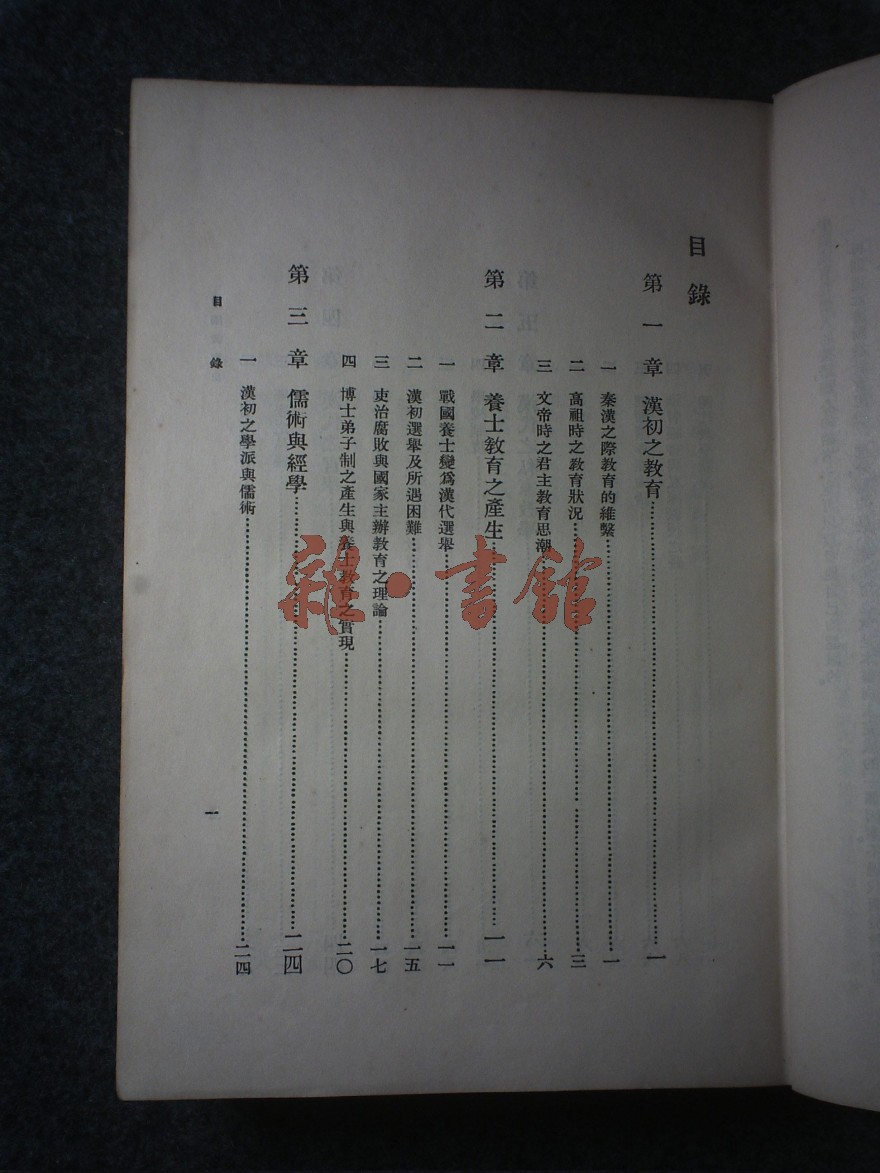 目錄
第一章 漢初之教育……一
一 秦漢之際教育的維繫……一
二 高祖時之教育狀況……三
三 文帝時之君主教育思潮……六
第二章 養士教育之產生……一一
一 戰國養士變爲漢代選舉……一一
二 漢初選舉及所遇困難……一五
三 吏治腐敗與國家主辦教育之理論……一七
四 博士弟子制之產生與養士教育之實現……二〇
第三章 儒術與經學……二四
一 漢初之學派與儒術……二四
目錄 一
雜·書館